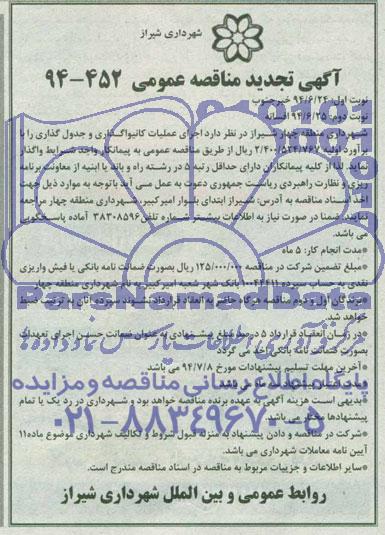 شهرداری شیراز
آگهی تجدید مناقصه عمومی ۴۵۲-۹۴
نوبت اول: ۹۴/۶/۲۴ خبر جنوب
نوبت دوم: ۹۴/۶/۲۵ افسانه
شهرداری منطقه چهار شیراز در نظر دارد اجرای عملیات کانیواگذاری و جدول گذاری را با
برآورد اولیه ریال از طریق مناقصه عمومی به پیمانکار واجد شرایط واگذار
نماید. لذا از کلیه پیمانکاران دارای حداقل رتبه ۵ در رشته راه و باند یا ابنیه از معاونت برنامه
ریزی و نظارت راهبردی ریاست جمهوری دعوت به عمل می آید باتوجه به موارد ذیل جهت
اخذ اسناد مناقصه به آدرس: شیراز ابتدای بلوار امیرکبیر، شهرداری منطقه چهار مراجعه
نمایند. ضمنا در صورت نیاز به اطلاعات بیشتر شماره تلفن ۳۸۳۰۸۵۹۶ آماده پاسخگویی
می باشد.
*مدت انجام کار: ۵ ماه
*مبلغ تضمین شرکت در مناقصه ۱۲۵/۰۰۰/۰۰۰ ریال بصورت ضمانت نامه بانکی یا فیش واریزی
نقدی به حساب سپرده ۱۰۰۴۴۴۱۱ بانک شهر شعبه امیرکبیر به نام شهرداری منطقه چهار
*برندگان اول و دوم مناقصه هرگاه حاضر به انعقاد قرارداد نشوند سپرده آنان به ترتیب ضبط
خواهد شد.
*در زمان انعقاد قرارداد ۵ درصد مبلغ پیشنهادی به عنوان ضمانت حسن اجرای تعهدات
بصورت ضمانت نامه بانکی اخذ می گردد
*آخرین مهلت تسلیم پیشنهادات مورخ ۹۴/۷/۸ می باشد
*مدت اعتبار پیشنهادات ماه می باشد
*بدیهی است هزینه آگهی به عهده برنده مناقصه خواهد بود و شهرداری در رد یک یا تمام
پیشنهادها مختار می باشد.
*شرکت در مناقصه و دادن پیشنهاد به منزله قبول شروط و تکالیف شهرداری موضوع ماده۱۱
آیین نامه معاملات شهرداری می باشد.
*سایر اطلاعات و جزییات مربوط به مناقصه در اسناد مناقصه مندرج است.
روابط عمومی و بین الملل شهرداری شیراز
پایگاه اطلاع رسانی مناقصه و مزایده
۰۲۱-۸۸۳۴۹۶۷۰-۵